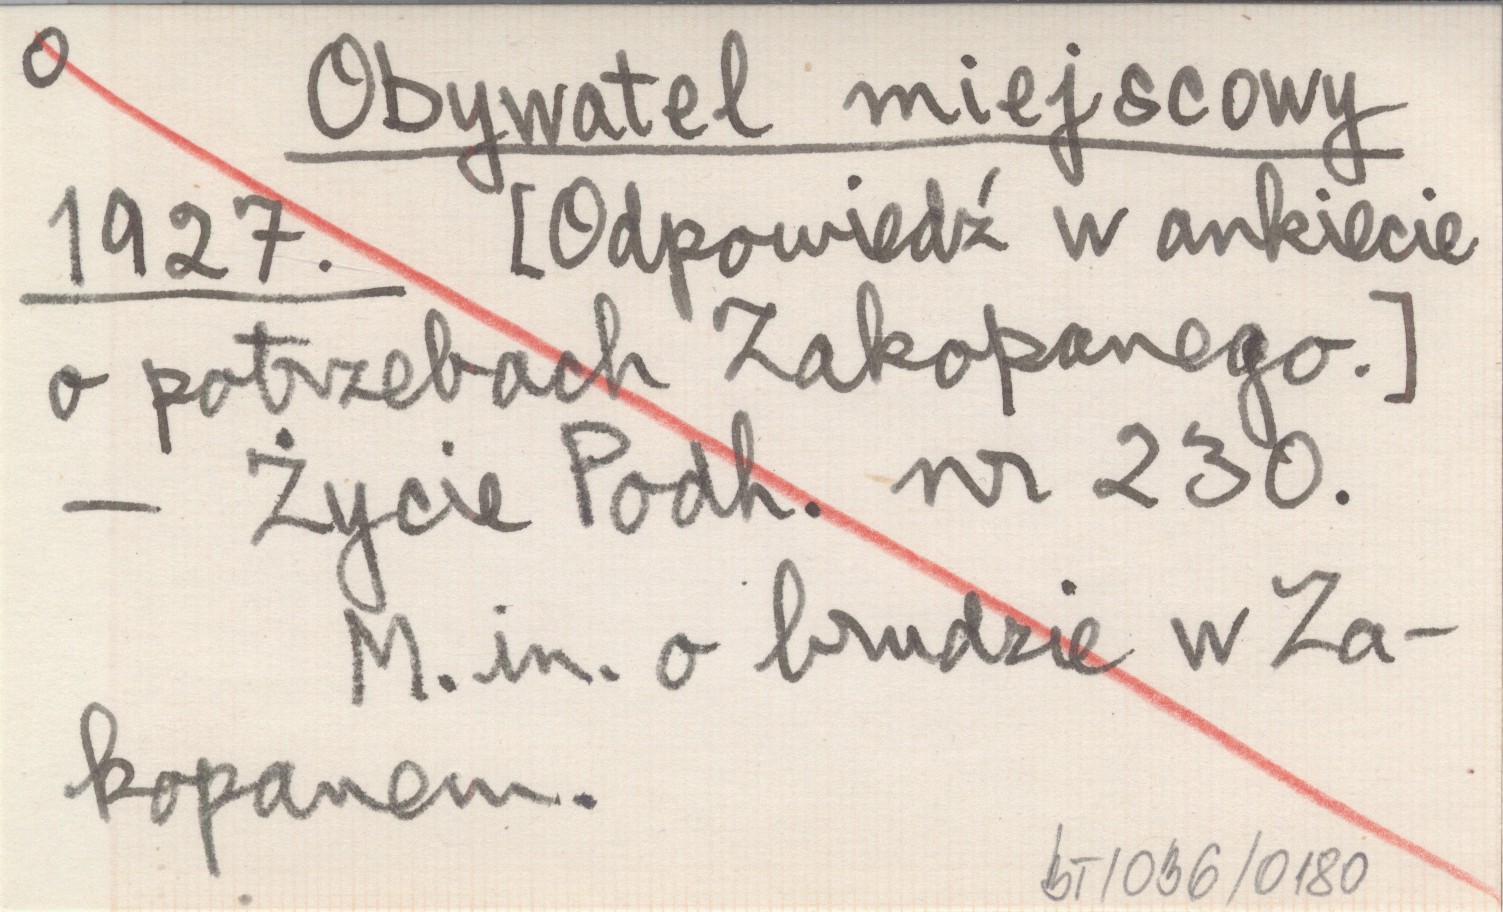 O Obywatel miejscowy
1927. [Odpowiedź w ankiecie
o potrzebach Zakopanego.]
— Życie Podh. nr 230.
M. in. o brudzie w Za-
kopanem.
BT/036/0180